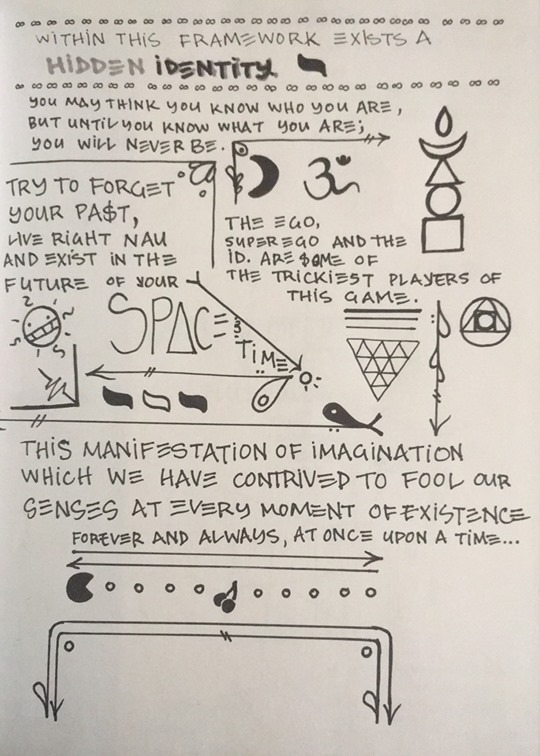 WITHIN THIS FRAMEWORK EXISTS A
HIDDEN IDENTITY.
YOU MAY THINK YOU KNOW WHO YOU ARE,
BUT UNTIL YOU KNOW WHAT YOU ARE;
YOU WILL NEVER BE.
TRY TO FORGET
YOUR PA$T,
LIVE RIGHT NAU
AND EXIST IN THE
FUTURE OF YOUR
SPACE &
TIME
ॐ
THE EGO,
SUPEREGO AND THE
ID. ARE $OME OF
THE TRICKIEST PLAYERS OF
THIS GAME.
THIS MANIFESTATION OF IMAGINATION
WHICH WE HAVE CONTRIVED TO FOOL OUR
SENSES AT EVERY MOMENT OF EXISTENCE
FOREVER AND ALWAYS, AT ONCE UPON A TIME...